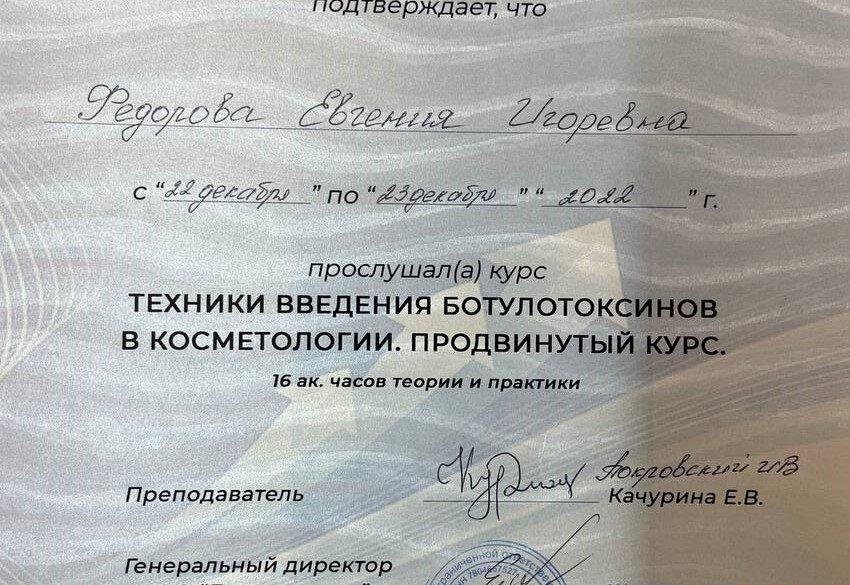 подтверждает, что
Федорова Евгения Игоревна
с “22 декабря” по “23 декабря” “2022” г.
прослушал(а) курс
ТЕХНИКИ ВВЕДЕНИЯ БОТУЛОТОКСИНОВ
В КОСМЕТОЛОГИИ. ПРОДВИНУТЫЙ КУРС.
16 ак. часов теории и практики
Покровский
Преподаватель Качурина Е.В.
Генеральный директор